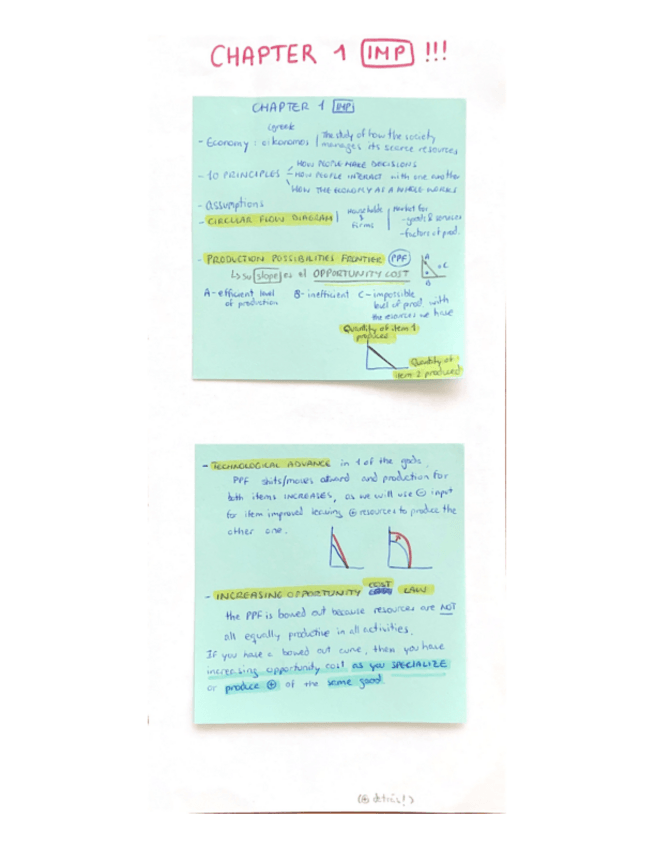 CHAPTER 1 IMP !!!
CHAPTER 1 IMP
Greek
- Economy: oikonomos | The study of how the society
manages its scarce resources
- 10 PRINCIPLES - HOW PEOPLE MAKE DECISIONS
- HOW PEOPLE INTERACT with one another
HOW THE ECONOMY AS A WHOLE WORKS
- assumptions
- CIRCULAR FLOW DIAGRAM | Households & firms | market for
- goods & services
- factors of prod.
- PRODUCTION POSSIBILITIES FRONTIER (PPF)
↳ su slope es el OPPORTUNITY COST
A
B
C
A - efficient level
of production
B - inefficient
C - impossible
level of prod. with
the resources we have
Quantity of item 1
produced
Quantity of
item 2 produced
- TECHNOLOGICAL ADVANCE in 1 of the goods.
PPF shifts/moves outward and production for
both items INCREASES, as we will use ⊖ input
for item improved leaving ⊕ resources to produce the
other one.
- INCREASING OPPORTUNITY COST LAW
the PPF is bowed out because resources are NOT
all equally productive in all activities.
If you have a bowed out curve, then you have
increasing opportunity cost as you SPECIALIZE
or produce ⊕ of the same good
(⊕ detrás!)